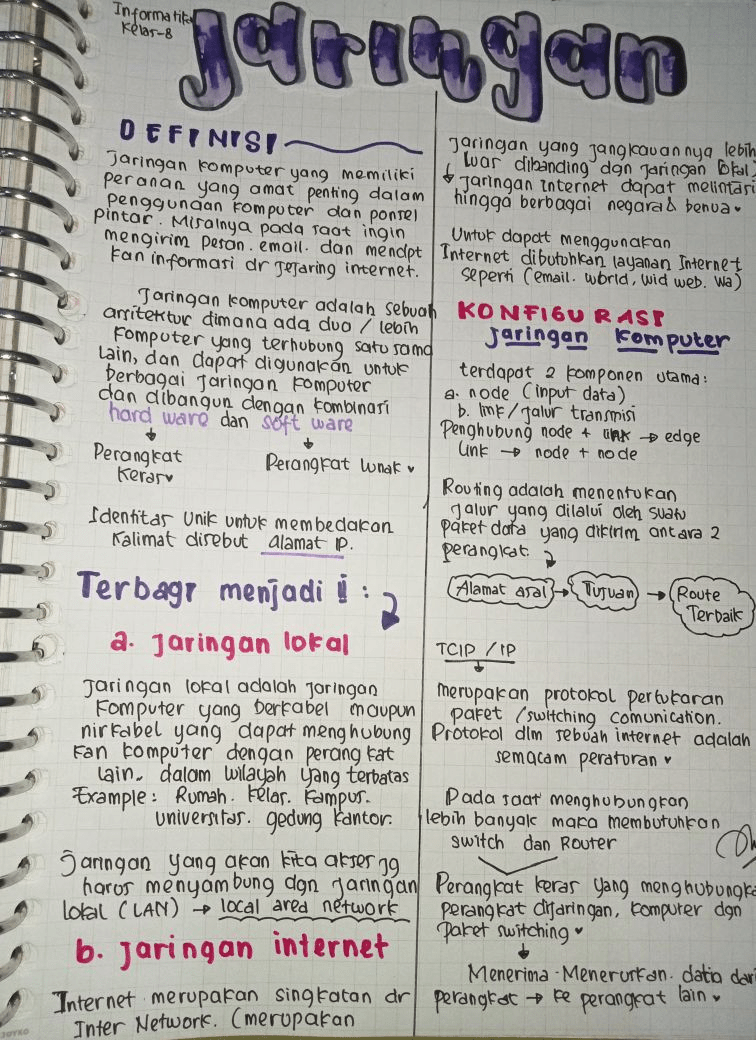 Informatika
Kelas-8
Jaringan
DEFINISI
Jaringan komputer yang memiliki
peranan yang amat penting dalam
penggunaan komputer dan ponsel
pintar. Misalnya pada saat ingin
mengirim pesan. email. dan mendpt
kan informasi dr jejaring internet.
Jaringan komputer adalah sebuah
arsitektur dimana ada dua / lebih
komputer yang terhubung satu sama
lain, dan dapat digunakan untuk
berbagai jaringan komputer
dan dibangun dengan kombinasi
hard ware dan soft ware
Perangkat
keras
Perangkat lunak
Identitas Unik untuk membedakan
kalimat disebut alamat IP.
Terbagi menjadi !! :
a. Jaringan lokal
Jaringan lokal adalah jaringan
komputer yang berkabel maupun
nirkabel yang dapat menghubung
kan komputer dengan perang kat
lain. dalam wilayah yang terbatas
Example : Rumah. kelas. kampus.
universitas. gedung kantor.
Jaringan yang akan kita akses jg
harus menyambung dgn jaringan
lokal (LAN) → local area network
b. Jaringan internet
Internet merupakan singkatan dr
Inter Network. (merupakan
Jaringan yang jangkauannya lebih
luas dibanding dgn jaringan lokal)
↳ Jaringan Internet dapat melintasi
hingga berbagai negara & benua.
Untuk dapat menggunakan
Internet dibutuhkan layanan Internet
seperti (email. world, wid web. wa)
KONFIGURASI
Jaringan komputer
terdapat 2 komponen utama:
a. node (input data)
b. link / jalur transmisi
Penghubung node + link → edge
link → node + node
Routing adalah menentukan
jalur yang dilalui oleh suatu
paket data yang dikirim antara 2
perangkat.
Alamat asal → Tujuan → Route
Terbaik
TCIP / IP
merupakan protokol pertukaran
paket / switching comunication.
Protokol dlm sebuah internet adalah
semacam peraturan
Pada saat menghubungkan
lebih banyak maka membutuhkan
switch dan Router
Perangkat keras yang menghubungka
perangkat dijaringan, komputer dgn
paket switching
Menerima - Meneruskan. data dari
perangkat → ke perangkat lain
JOYKO